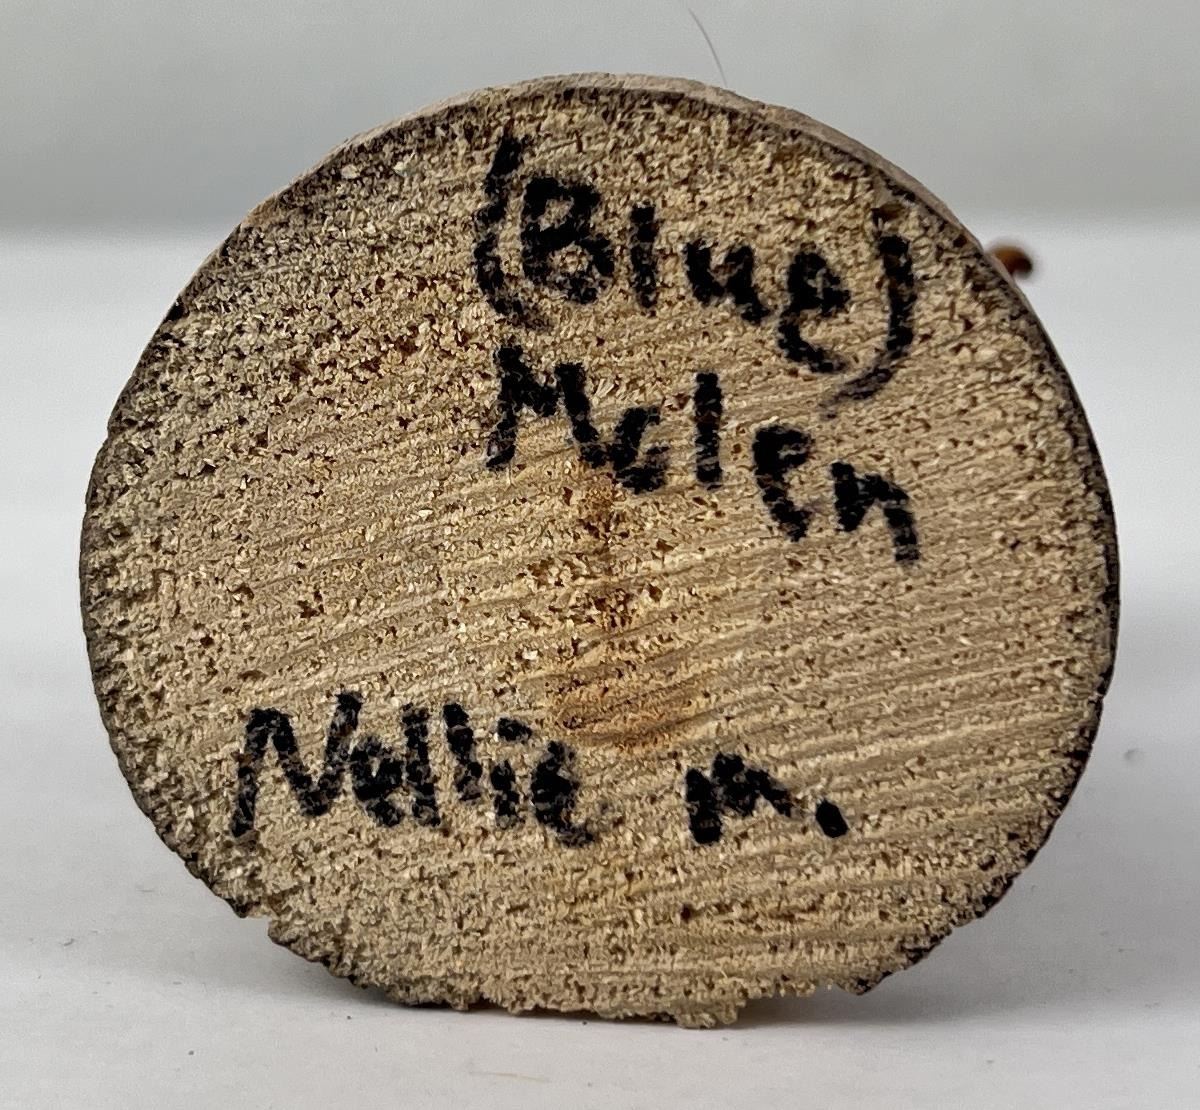 (Blue)
Malen
Nellie M.